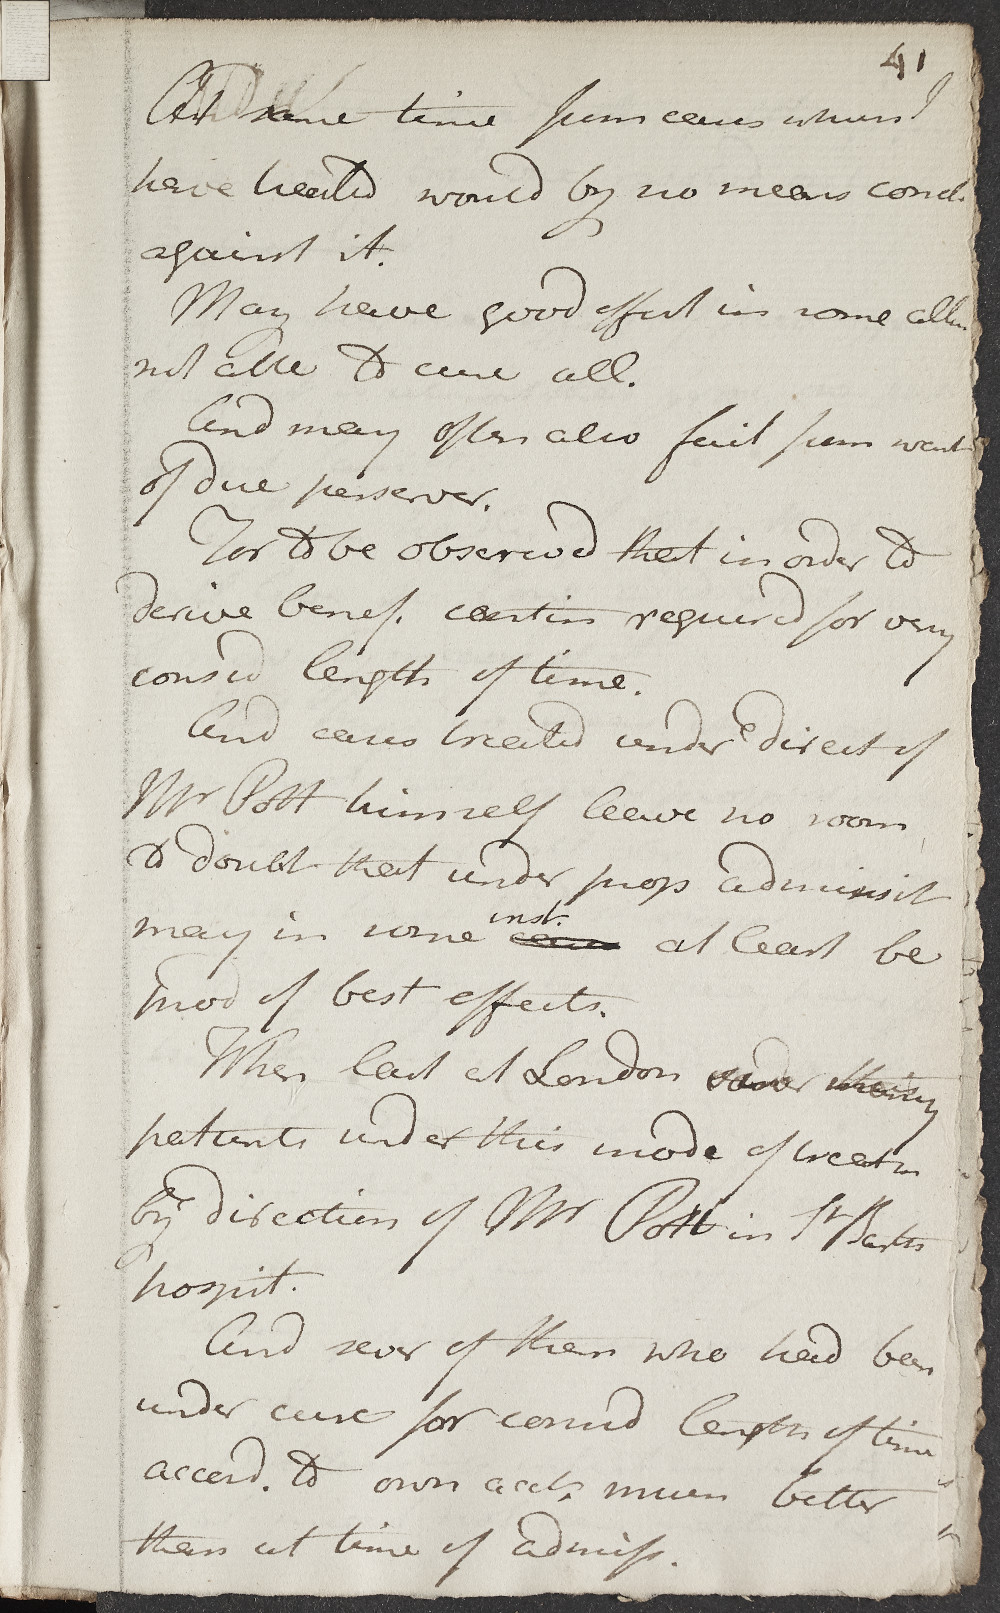 41
At same time from cases where I
have treated would by no means concl.
against it.
May have good effect in some altho
not able to cure all.
And may often also fail from want
of due perserver.
For to be observed that in order to
derive benef. contin required for very
consid length of time.
And cases treated under ye direct of
Mr Pott himself leave no room
to doubt that under prop adminsit
may in some inst. at least be
prod of best effects.
When last at London
patients under this mode of treatm
by direction of Mr Pott in St Barths
hospit.
And sever of them who had been
under cure for consid length of time
accord. to own acct, much better
than at time of admiss.